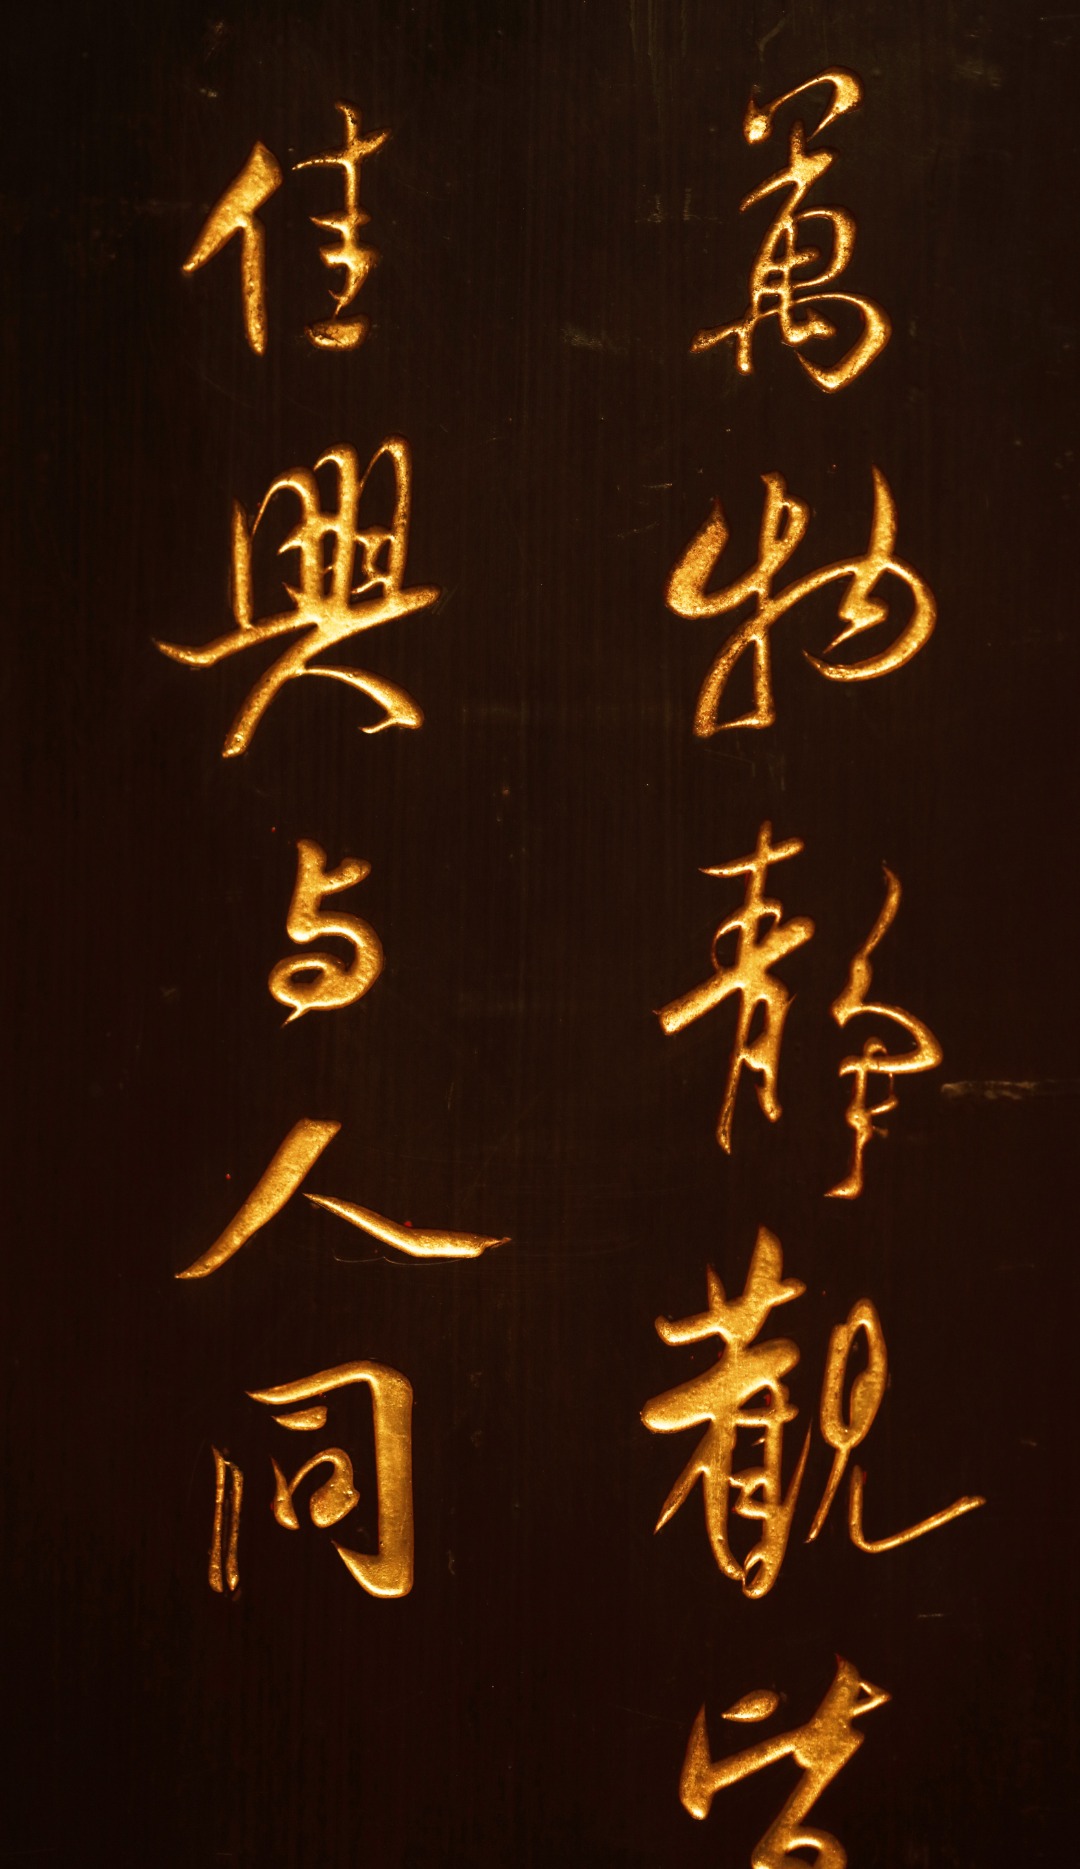 萬物靜觀皆
佳興与人同